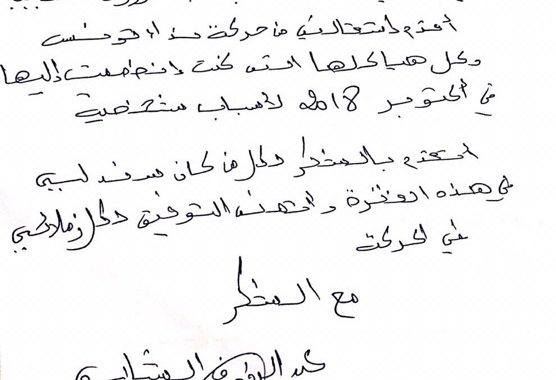 أقدم استقالتي من حركة نداء تونس
وكل هياكلها التي كنت انضممت إليها
في أكتوبر 2018 لأسباب شخصية
أتقدم بالشكر لكل من كان سند لي
في هذه الفترة وأتمنى التوفيق لكل زملائي
في الحركة
مع الشكر
عبد الرؤوف